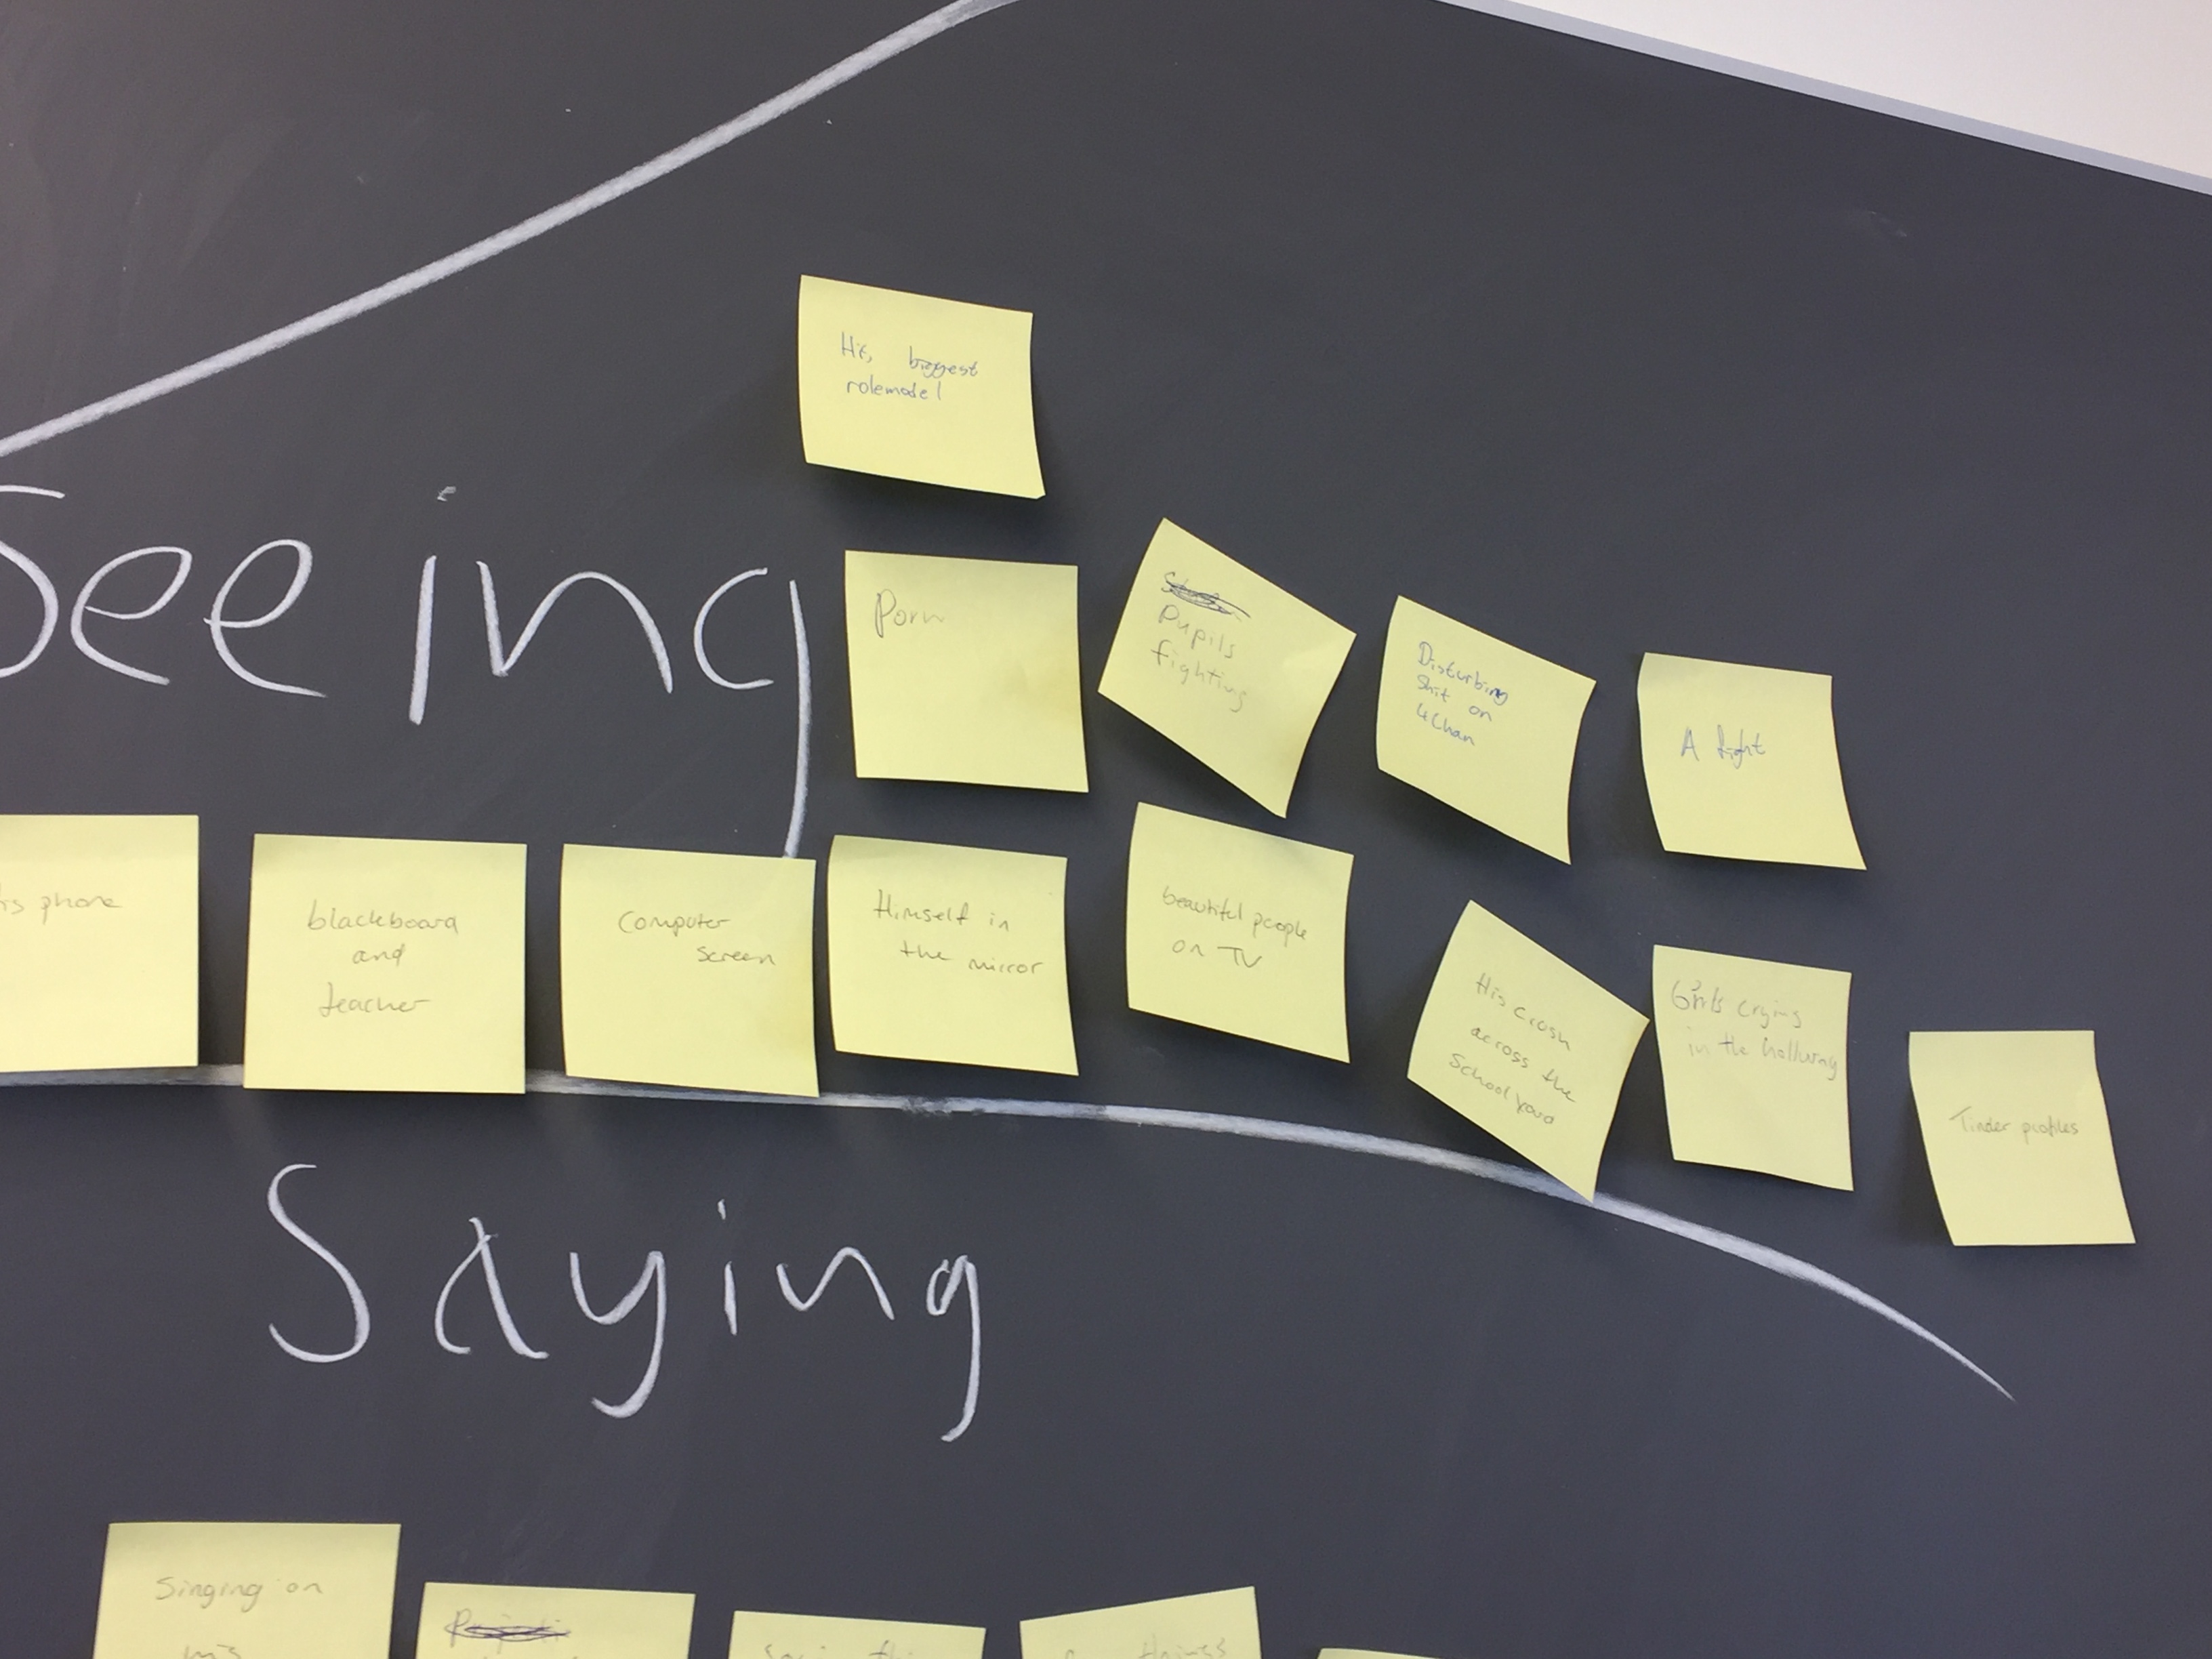 His biggest
rolemodel
Seeing
Porn
Pupils
fighting
Disturbing
Shit on
4Chan
A fight
is phone
blackboard
and
teacher
Computer
screen
Himself in
the mirror
beautiful people
on TV
His crush
across the
School yard
Girls crying
in the hallway
Tinder profiles
Saying
Singing on
things